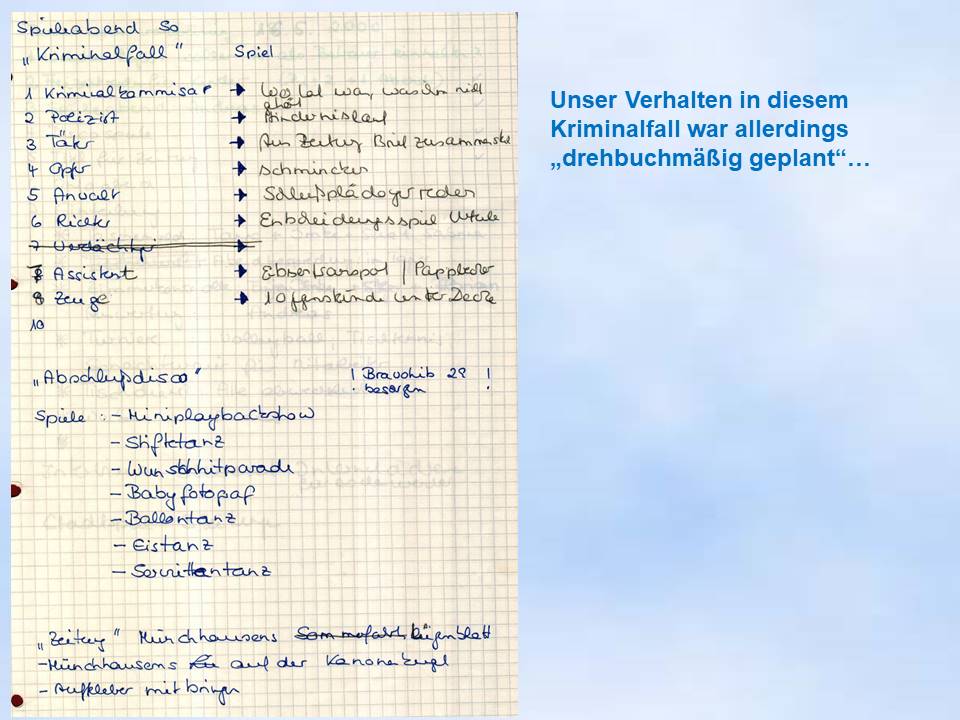 Spieleabend So
„Kriminalfall" Spiel
1 Kriminalkommisar → Wo ist was, was
2 Polizist → Hindernislauf
3 Täter → Aus Zeitung Brief
4 Opfer → schminken
5 Anwalt → Schlußplädoyer reden
6 Richter → Entscheidungsspiel Urteile
7 Verdächtiger →
8 Assistent →
9 Zeuge → unter Decke
10
„Abschlußdisco" ! Bravohits 29 !
besorgen
Spiele : - Miniplaybackshow
- Stiftetanz
- Wunschhitparade
- Babyfoto
- Ballontanz
- Eistanz
- Serviettentanz
„Zeitung" Münchhausens Sommerfahrt Lügenblatt
- Münchhausens auf der Kanonenkugel
- Aufkleber mitbringen
Unser Verhalten in diesem
Kriminalfall war allerdings
„drehbuchmäßig geplant“…